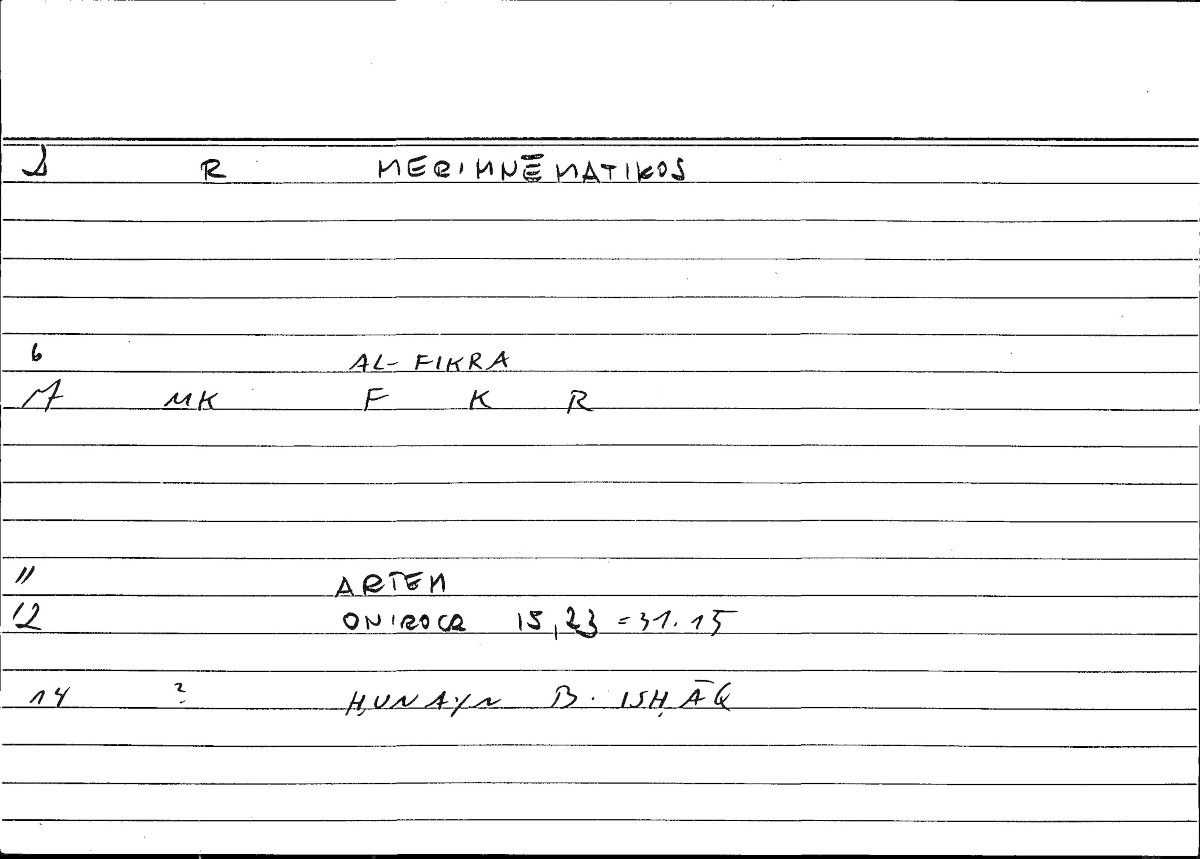 1 R MERIMNĒMATIKOS
6 AL-FIKRA
7 MK F K R
11 ARTEM
12 ONIROCR 15,23 = 31.15
14 ? ḤUNAYN B. ISḤĀQ